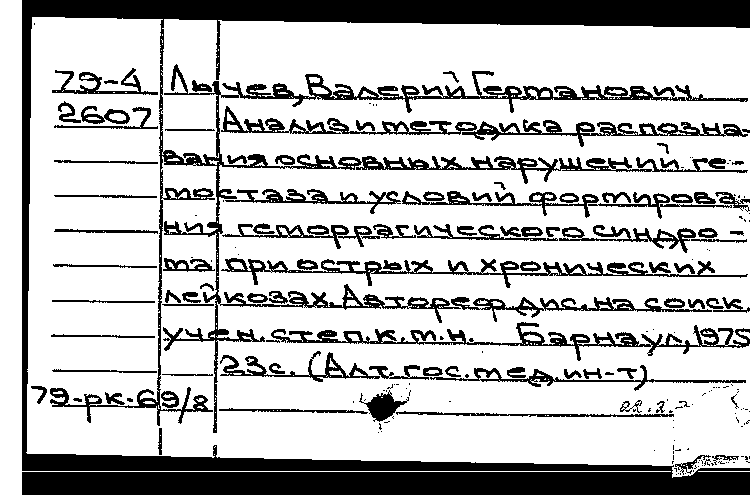 79-4 Лычев, Валерий Германович.
2607 Анализ и методика распозна-
вания основных нарушений ге-
мостаза и условий формирова-
ния геморрагического синдро-
ма при острых и хронических
лейкозах. Автореф. дис. на соиск.
учен. степ. к.м.н. Барнаул, 1975
23с. (Алт. гос. мед. ин-т)
79-рк-69/8